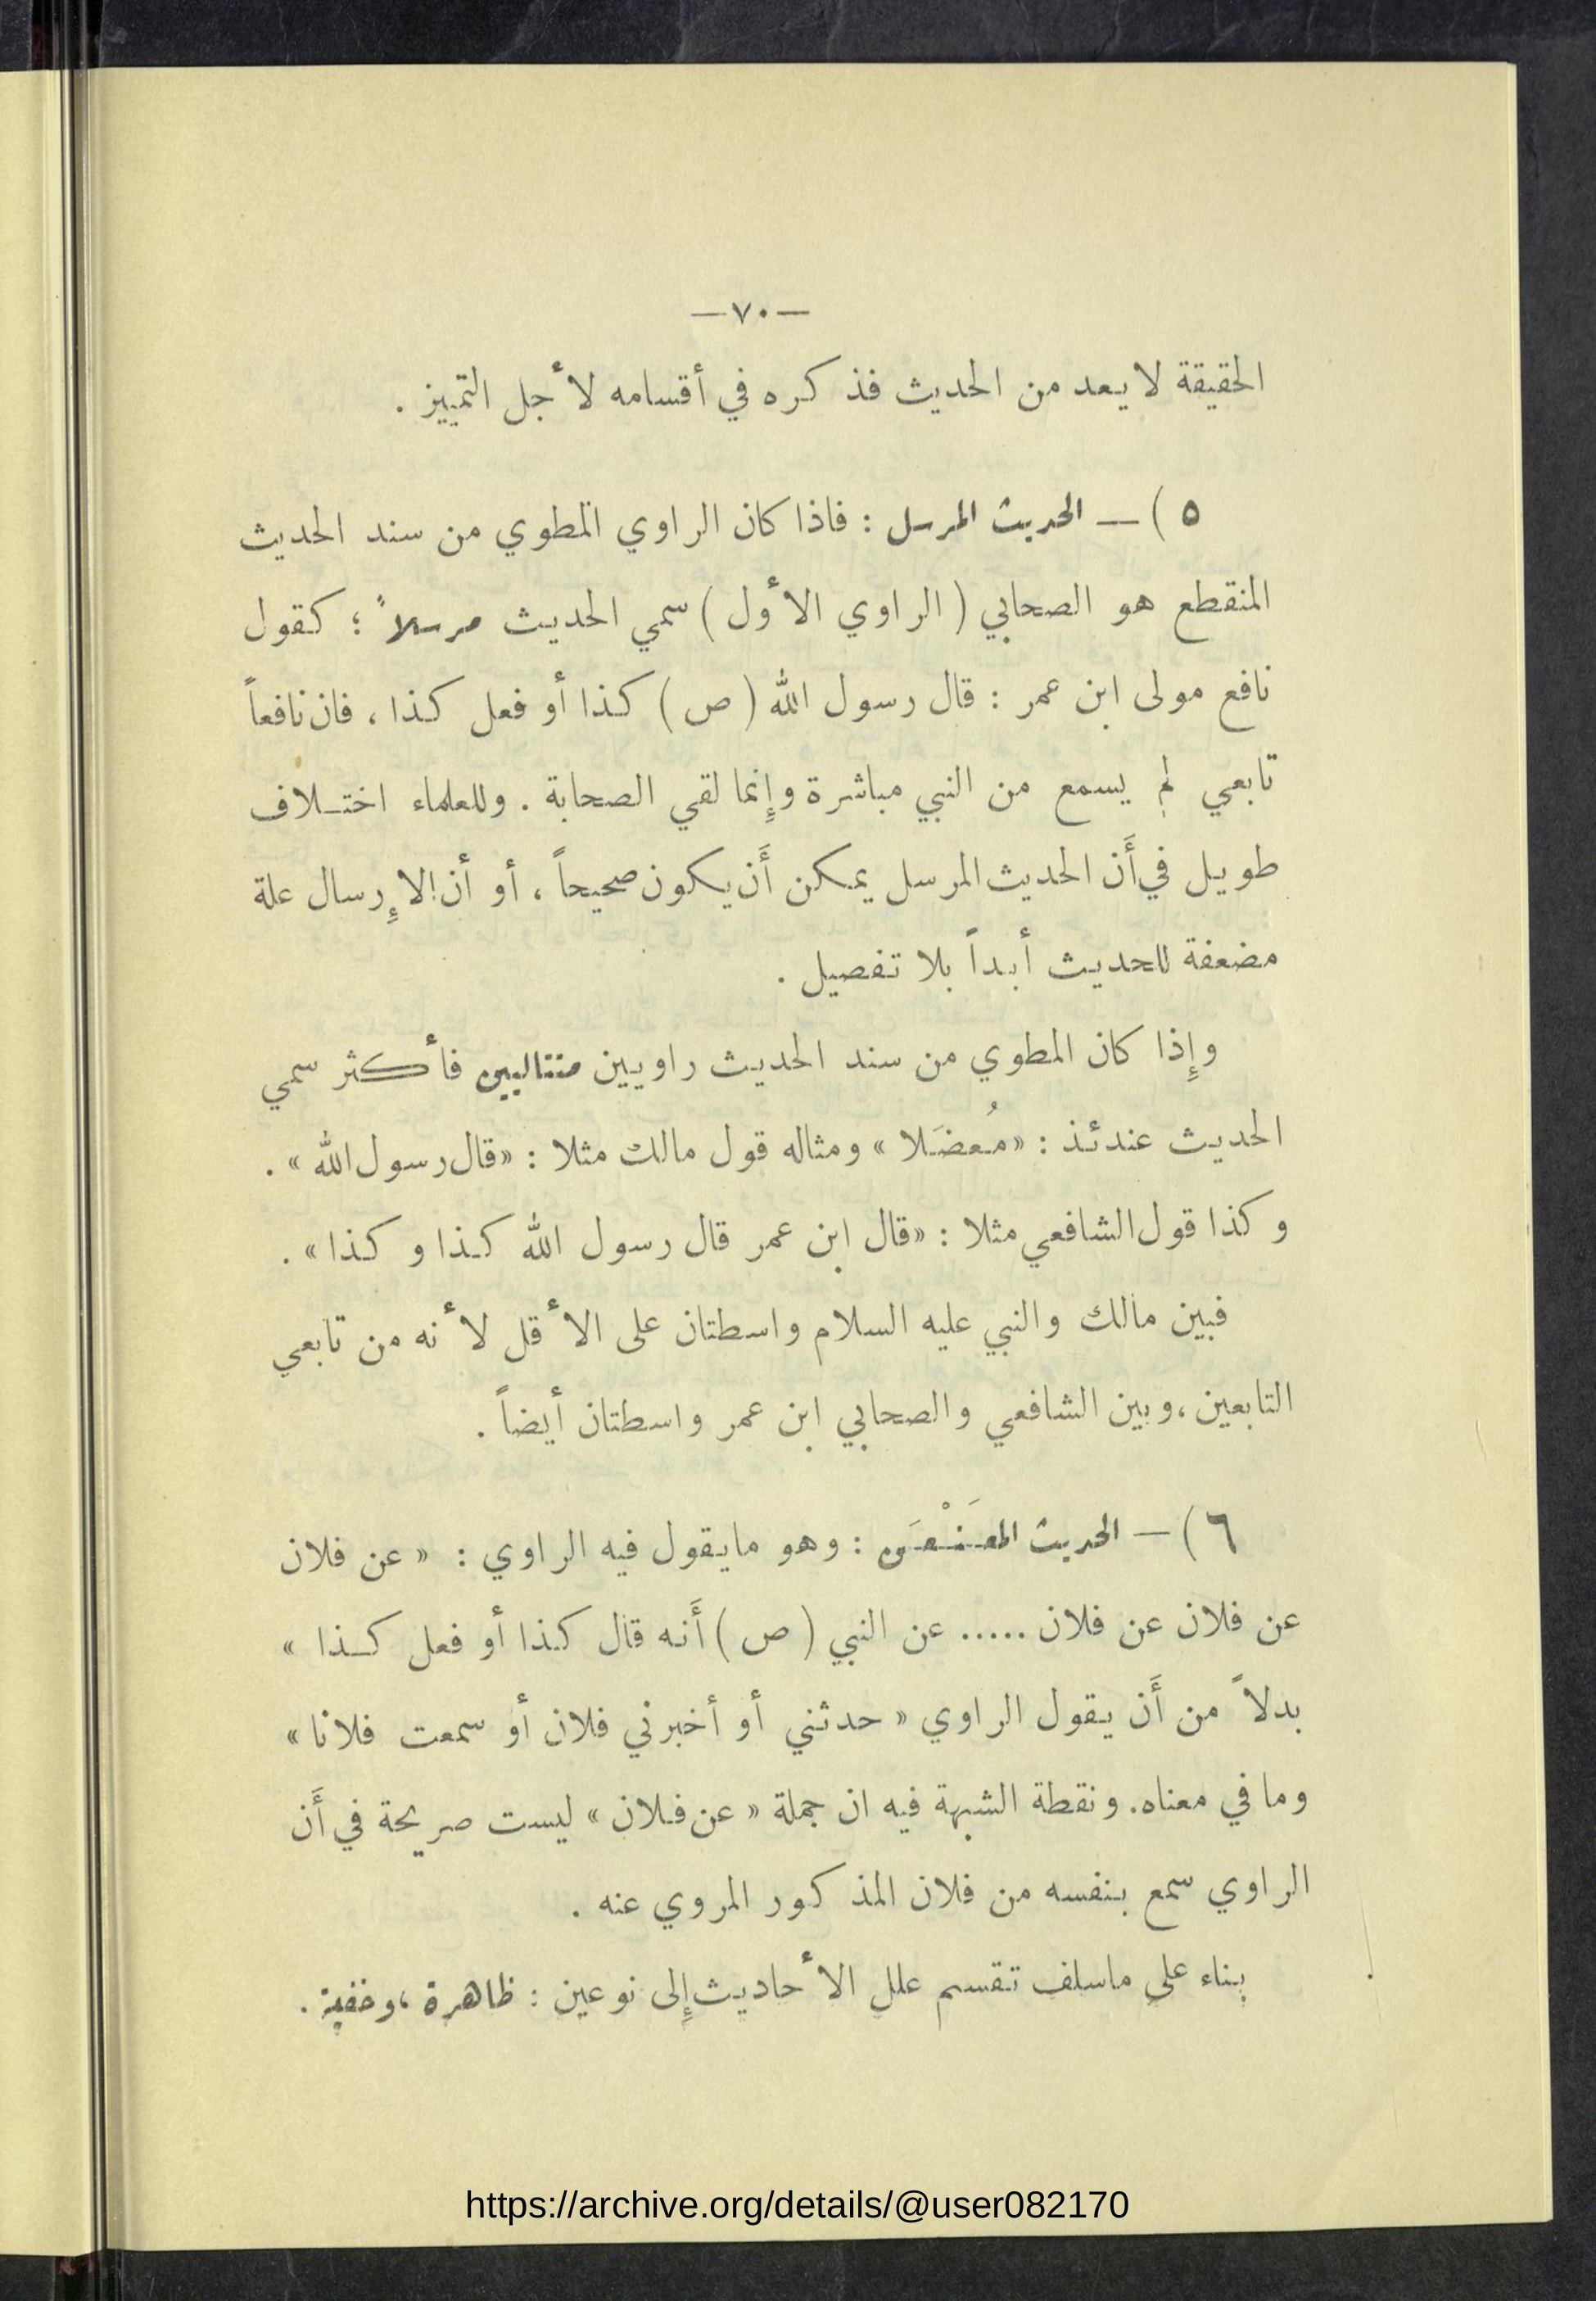 —٧٠—
الحقيقة لا يعد من الحديث فذكره في أقسامه لأجل التمييز .
٥ ) — الحديث المرسل : فاذا كان الراوي المطوي من سند الحديث
المنقطع هو الصحابي ( الراوي الأول ) سمي الحديث مرسلاً ؛ كقول
نافع مولى ابن عمر : قال رسول الله ( ص ) كذا أو فعل كذا ، فان نافعاً
تابعي لم يسمع من النبي مباشرة وإنما لقي الصحابة . وللعلماء اختلاف
طويل في أَن الحديث المرسل يمكن أَن يكون صحيحاً ، أو أن الإرسال علة
مضعفة للحديث أبداً بلا تفصيل .
وإِذا كان المطوي من سند الحديث راويين متتاليين فأكثر سمي
الحديث عندئذ : « مُعضَلا » ومثاله قول مالك مثلا : « قال رسول الله » .
وكذا قول الشافعي مثلا : « قال ابن عمر قال رسول الله كذا وكذا » .
فبين مالك والنبي عليه السلام واسطتان على الأقل لأنه من تابعي
التابعين ، وبين الشافعي والصحابي ابن عمر واسطتان أيضاً .
٦ ) — الحديث المعَنْعَن : وهو ما يقول فيه الراوي : « عن فلان
عن فلان عن فلان ..... عن النبي ( ص ) أَنه قال كذا أو فعل كذا »
بدلاً من أَن يقول الراوي « حدثني أو أخبرني فلان أو سمعت فلانا »
وما في معناه . ونقطة الشبهة فيه ان جملة « عن فلان » ليست صريحة في أَن
الراوي سمع بنفسه من فلان المذكور المروي عنه .
بناء على ماسلف تقسم علل الأحاديث إِلى نوعين : ظاهرة ، وخفية .
https://archive.org/details/@user082170